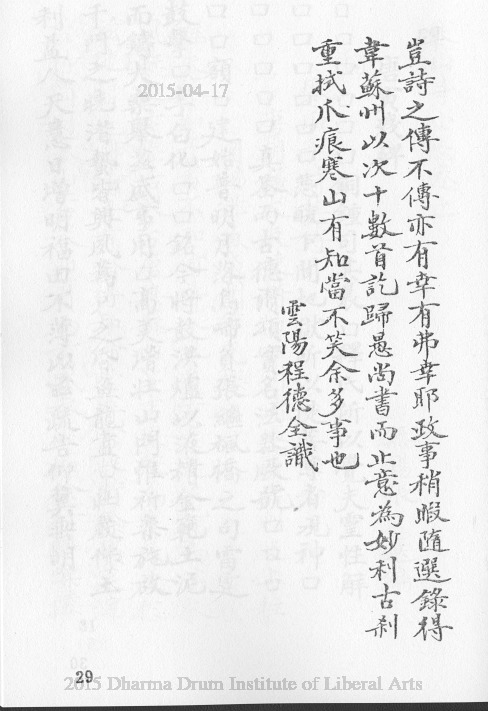 豈詩之傳不傳亦有幸有弗幸耶政事稍暇隨選錄得
韋蘇州以次十數首訖歸愚尚書而止意為妙利古剎
重拭爪痕寒山有知當不笑余多事也
雲陽程德全識
2015-04-17
29
2015 Dharma Drum Institute of Liberal Arts